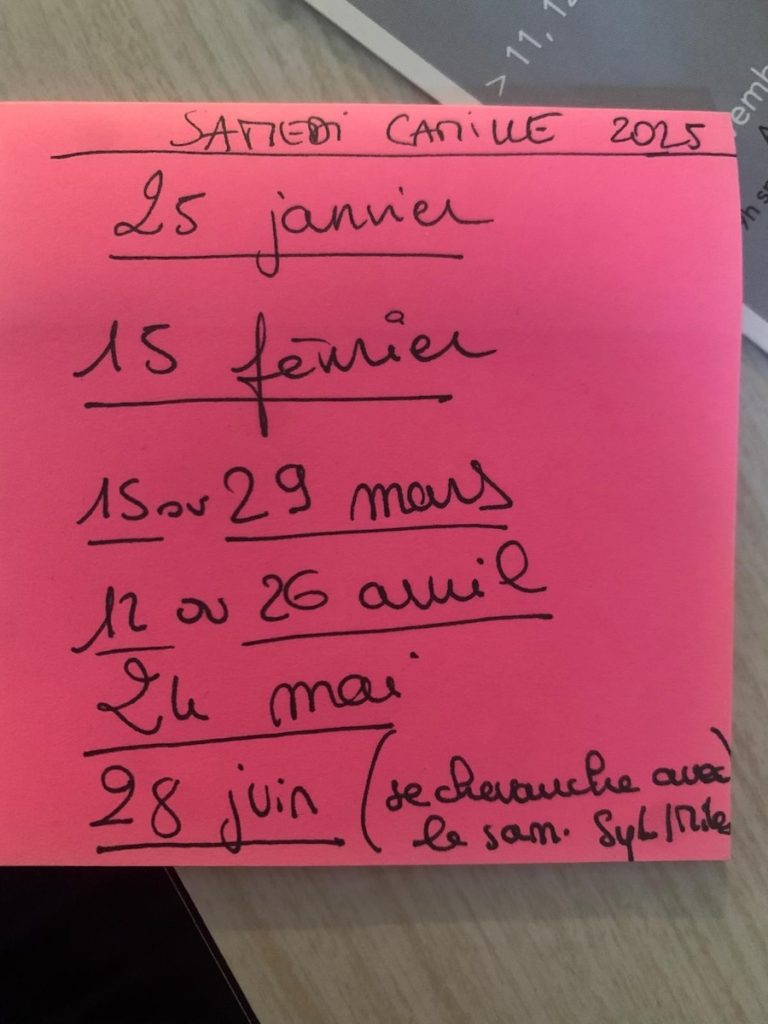 > 11, 12
vemb
9h
SAMEDI CAMILLE 2025
25 janvier
15 février
15 ou 29 mars
12 ou 26 avril
24 mai
28 juin (se chevauche avec
le sam. Syl/